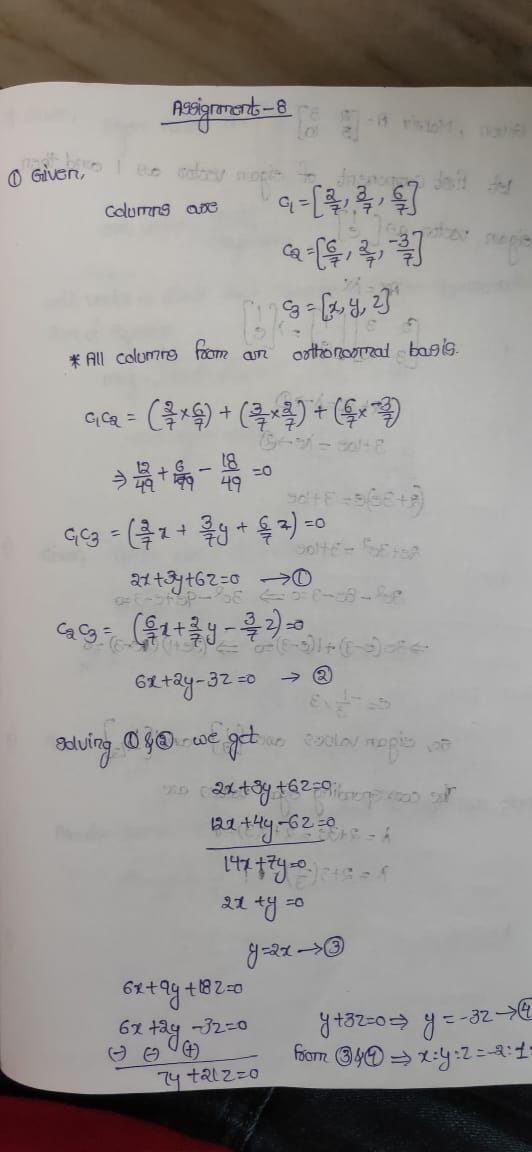 Assignment-8
① Given,
columns are C₁ = [2/7, 3/7, 6/7]
C₂ = [6/7, 2/7, -3/7]
C₃ = [x, y, z]
* All columns from an orthonormal basis.
C₁C₂ = (2/7 × 6/7) + (3/7 × 2/7) + (6/7 × -3/7)
⇒ 12/49 + 6/49 - 18/49 = 0
C₁C₃ = (2/7 x + 3/7 y + 6/7 z) = 0
2x+3y+6z=0 → ①
C₂C₃ = (6/7 x + 2/7 y - 3/7 z) = 0
6x+2y-3z=0 → ②
Solving ① & ② we get
2x+3y+6z=0
12x+4y-6z=0
14x+7y=0
2x+y=0
y=2x → ③
6x+9y+18z=0
6x+2y-3z=0
(-) (-) (+)
7y+21z=0
y+3z=0 ⇒ y=-3z → ④
from ③ & ④ ⇒ x:y:z = -2:1: